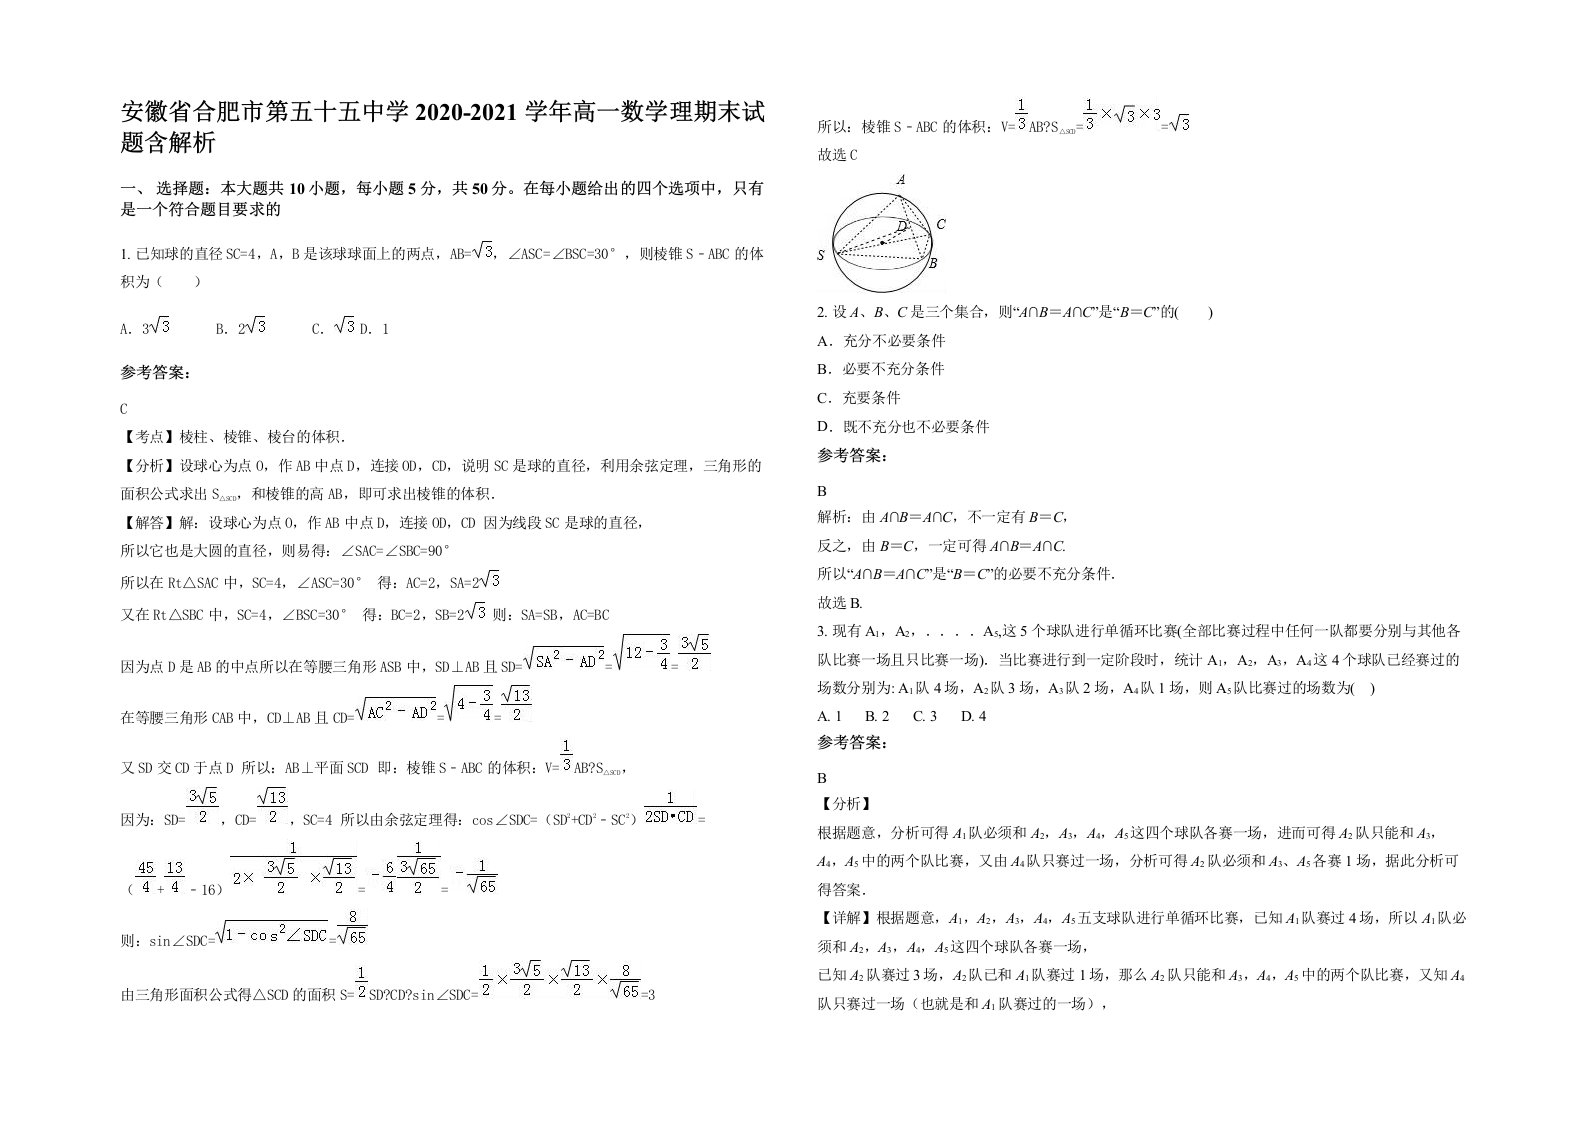 安徽省合肥市第五十五中学 2020-2021 学年高一数学理期末试
题含解析
一、 选择题：本大题共 10 小题，每小题 5 分，共 50 分。在每小题给出的四个选项中，只有
是一个符合题目要求的
1. 已知球的直径 SC=4，A，B 是该球球面上的两点，AB=√3，∠ASC=∠BSC=30°，则棱锥 S﹣ABC 的体
积为（　　）
A．3√3　　B．2√3　　C．√3 D．1
参考答案：
C
【考点】棱柱、棱锥、棱台的体积．
【分析】设球心为点 O，作 AB 中点 D，连接 OD，CD，说明 SC 是球的直径，利用余弦定理，三角形的
面积公式求出 S△SCD，和棱锥的高 AB，即可求出棱锥的体积．
【解答】解：设球心为点 O，作 AB 中点 D，连接 OD，CD 因为线段 SC 是球的直径，
所以它也是大圆的直径，则易得：∠SAC=∠SBC=90°
所以在 Rt△SAC 中，SC=4，∠ASC=30° 得：AC=2，SA=2√3
又在 Rt△SBC 中，SC=4，∠BSC=30° 得：BC=2，SB=2√3 则：SA=SB，AC=BC
因为点 D 是 AB 的中点所以在等腰三角形 ASB 中，SD⊥AB 且 SD=√(SA²－AD²)=√(12－3/4)=3√5/2
在等腰三角形 CAB 中，CD⊥AB 且 CD=√(AC²－AD²)=√(4－3/4)=√13/2
又 SD 交 CD 于点 D 所以：AB⊥平面 SCD 即：棱锥 S﹣ABC 的体积：V=1/3AB?S△SCD，
因为：SD=3√5/2，CD=√13/2，SC=4 所以由余弦定理得：cos∠SDC=（SD²+CD²﹣SC²）1/(2SD•CD)=
（45/4+13/4﹣16）1/(2×3√5/2×√13/2)=－6/4 1/(3√65/2)=－1/√65
则：sin∠SDC=√(1－cos²∠SDC)=8/√65
由三角形面积公式得△SCD 的面积 S=1/2SD?CD?sin∠SDC=1/2×3√5/2×√13/2×8/√65=3
所以：棱锥 S﹣ABC 的体积：V=1/3AB?S△SCD=1/3×√3×3=√3
故选 C
A
D
C
S
B
2. 设 A、B、C 是三个集合，则“A∩B＝A∩C”是“B＝C”的(　　)
A．充分不必要条件
B．必要不充分条件
C．充要条件
D．既不充分也不必要条件
参考答案：
B
解析：由 A∩B＝A∩C，不一定有 B＝C，
反之，由 B＝C，一定可得 A∩B＝A∩C.
所以“A∩B＝A∩C”是“B＝C”的必要不充分条件．
故选 B.
3. 现有 A1，A2，．．．．A5,这 5 个球队进行单循环比赛(全部比赛过程中任何一队都要分别与其他各
队比赛一场且只比赛一场)．当比赛进行到一定阶段时，统计 A1，A2，A3，A4 这 4 个球队已经赛过的
场数分别为: A1 队 4 场，A2 队 3 场，A3 队 2 场，A4 队 1 场，则 A5 队比赛过的场数为(　)
A. 1　B. 2　C. 3　D. 4
参考答案：
B
【分析】
根据题意，分析可得 A1 队必须和 A2，A3，A4，A5 这四个球队各赛一场，进而可得 A2 队只能和 A3，
A4，A5 中的两个队比赛，又由 A4 队只赛过一场，分析可得 A2 队必须和 A3、A5 各赛 1 场，据此分析可
得答案．
【详解】根据题意，A1，A2，A3，A4，A5 五支球队进行单循环比赛，已知 A1 队赛过 4 场，所以 A1 队必
须和 A2，A3，A4，A5 这四个球队各赛一场，
已知 A2 队赛过 3 场，A2 队已和 A1 队赛过 1 场，那么 A2 队只能和 A3，A4，A5 中的两个队比赛，又知 A4
队只赛过一场（也就是和 A1 队赛过的一场），